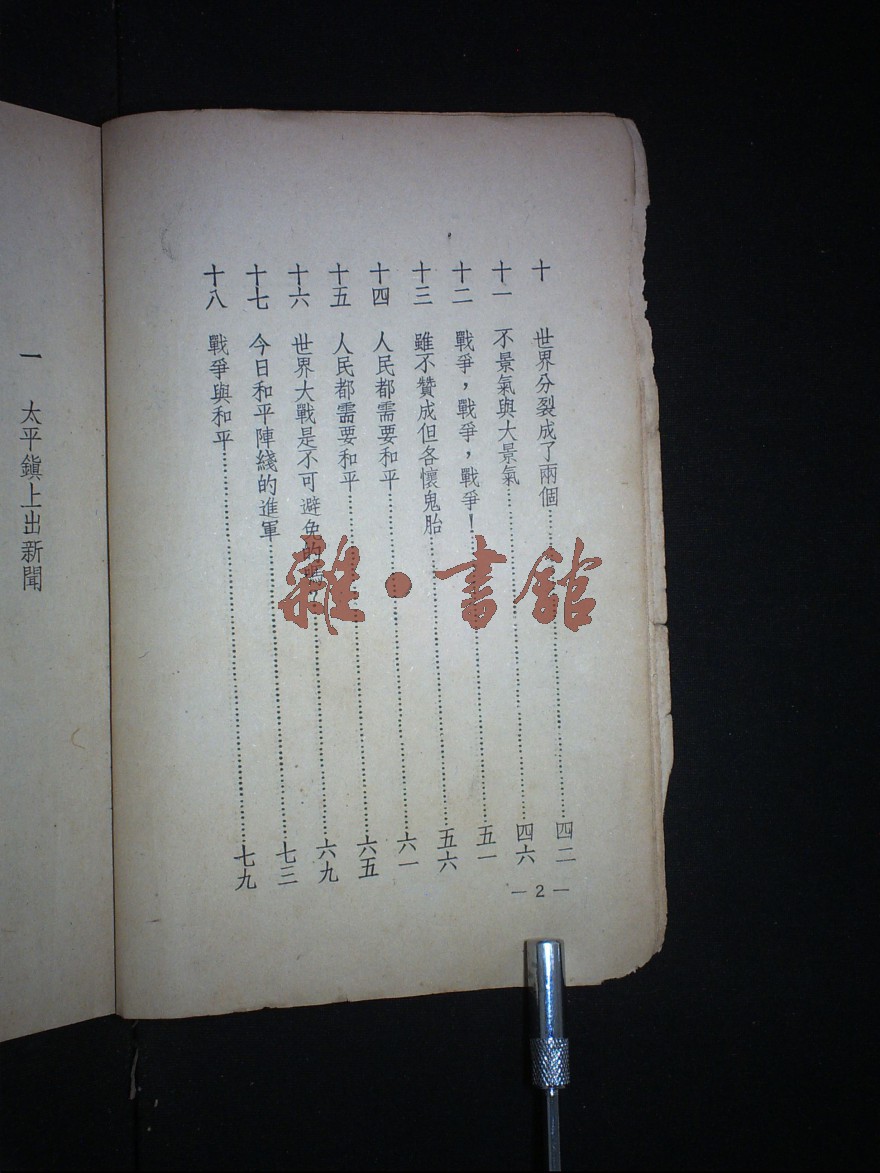 十 世界分裂成了兩個……四二
十一 不景氣與大景氣……四六
十二 戰爭，戰爭，戰爭！……五一
十三 雖不贊成但各懷鬼胎……五六
十四 人民都需要和平……六一
十五 人民都需要和平……六五
十六 世界大戰是不可避免的嗎……六九
十七 今日和平陣綫的進軍……七三
十八 戰爭與和平……七九
— 2 —
一 太平鎮上出新聞
雜·書館